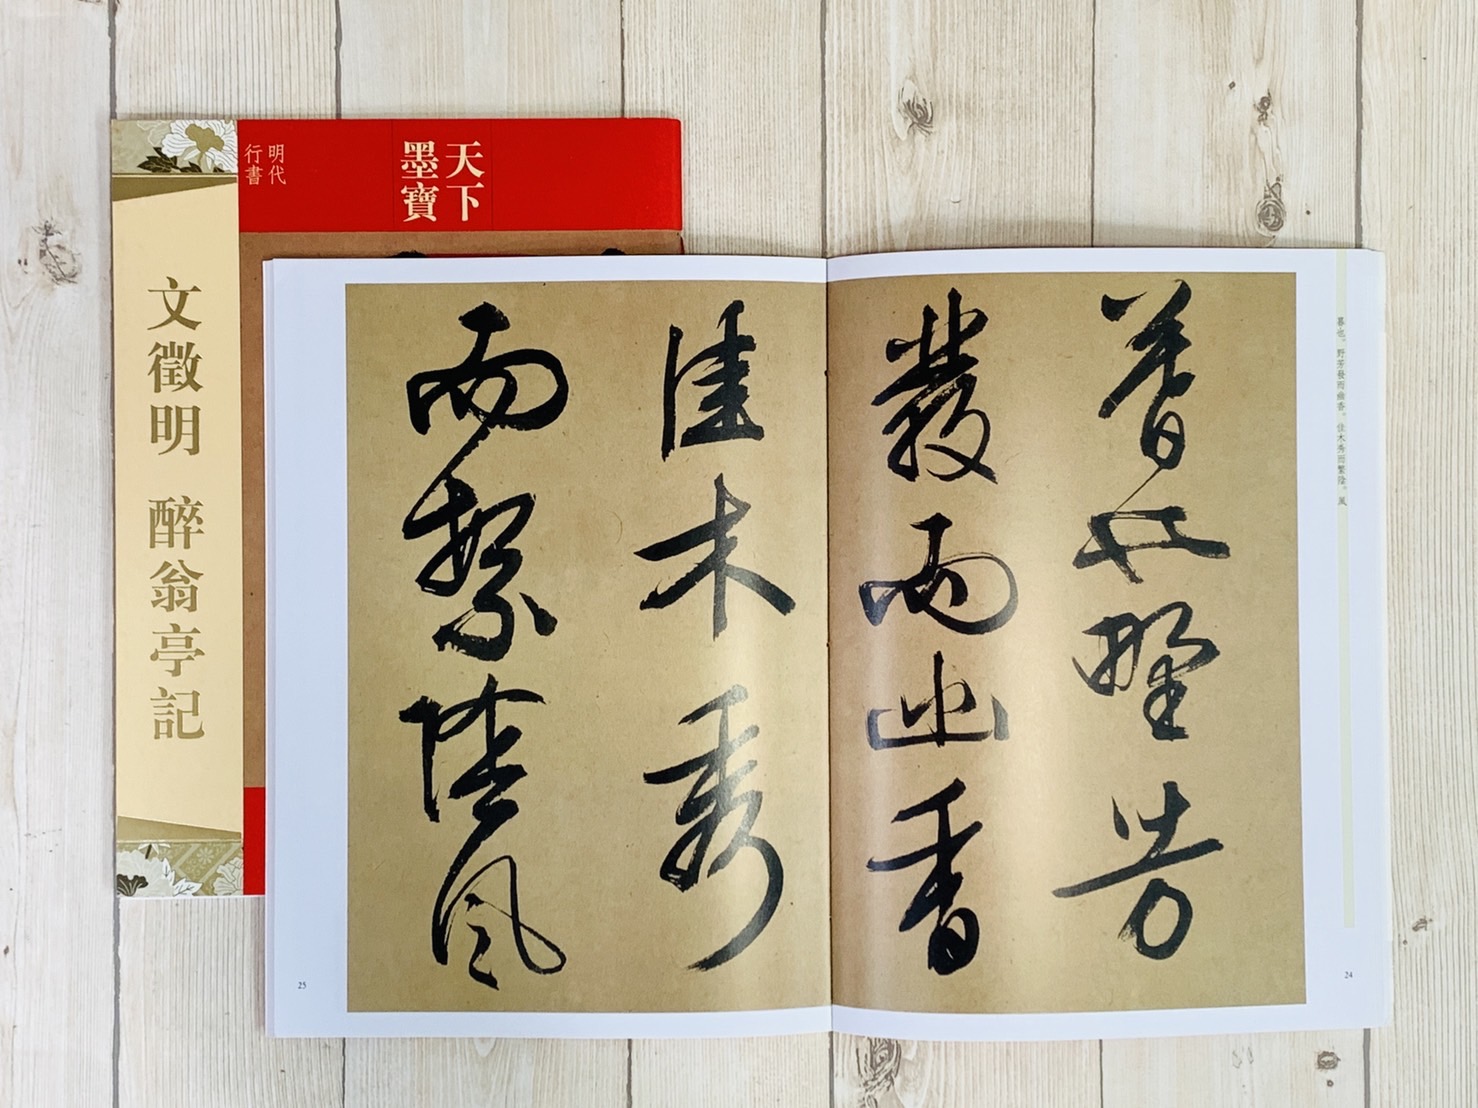 明代
行書
天下
墨寶
文徵明 醉翁亭記
暮也。野芳發而幽香。佳木秀而繁陰。風
暮也野芳
發而幽香
佳木秀
而繁陰風
24
25